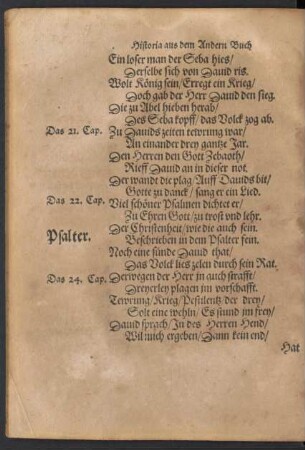 Historia aus dem Andern Buch
Ein loser man der Seba hies/
Derselbe sich von Dauid ris.
Wolt König sein/ Erregt ein Krieg/
Doch gab der Herr Dauid den sieg.
Die zu Abel hieben herab/
Des Seba kopff/ das Volck zog ab.
Das 21. Cap. Zu Dauids zeiten tewrung war/
An einander drey gantze Jar.
Den Herren den Gott Zebaoth/
Rieff Dauid an in dieser not.
Der wandt die plag/ Auff Dauids bit/
Gotte zu danck/ sang er ein Lied.
Das 22. Cap. Viel schöner Psalmen dichtet er/
Zu Ehren Gott/ zu trost vnd lehr.
Psalter. Der Christenheit/ wie die auch sein.
Beschrieben in dem Psalter fein.
Noch eine sünde Dauid that/
Das Volck lies zelen durch sein Rat.
Das 24. Cap. Derwegen der Herr jn auch strafft/
Dreyerley plagen jm vorschafft.
Tewrung/ Krieg/ Pestilentz der drey/
Solt eine wehln/ Es stund jm frey/
Dauid sprach/ In des Herren Hend/
Wil mich ergeben/ Dann kein end/
Hat